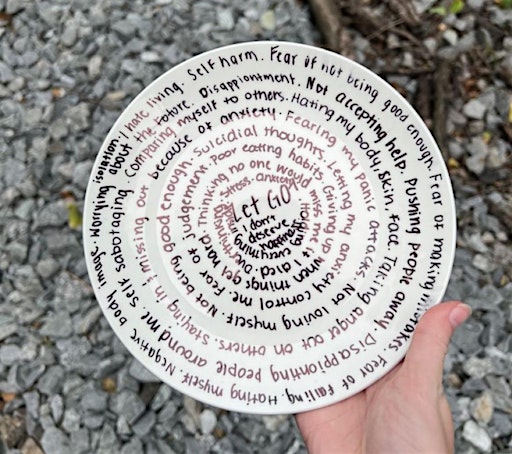 isolation. I hate living. Self harm. Fear of not being good enough. Fear of making mistake. Fear of failing. Hating myself. Negative body image.
Worrying about the future. Disappiontment. Not accepting help. Pushing people away. Disappionting people around me. Self sabotaging.
Comparing myself to others. Hating my body, skin, face. Taking anger out on others. Staying in & missing out
because of anxiety. Fearing my panic attacks. Not loving myself. Not being good enough.
Suicidial thoughts. Letting my anxiety control me. Fear of Judgement.
Poor eating habits. Giving up when things get hard.
Thinking no one would miss me if I died.
Stress. anxiety.
Let GO
I don't
deserve
happiness